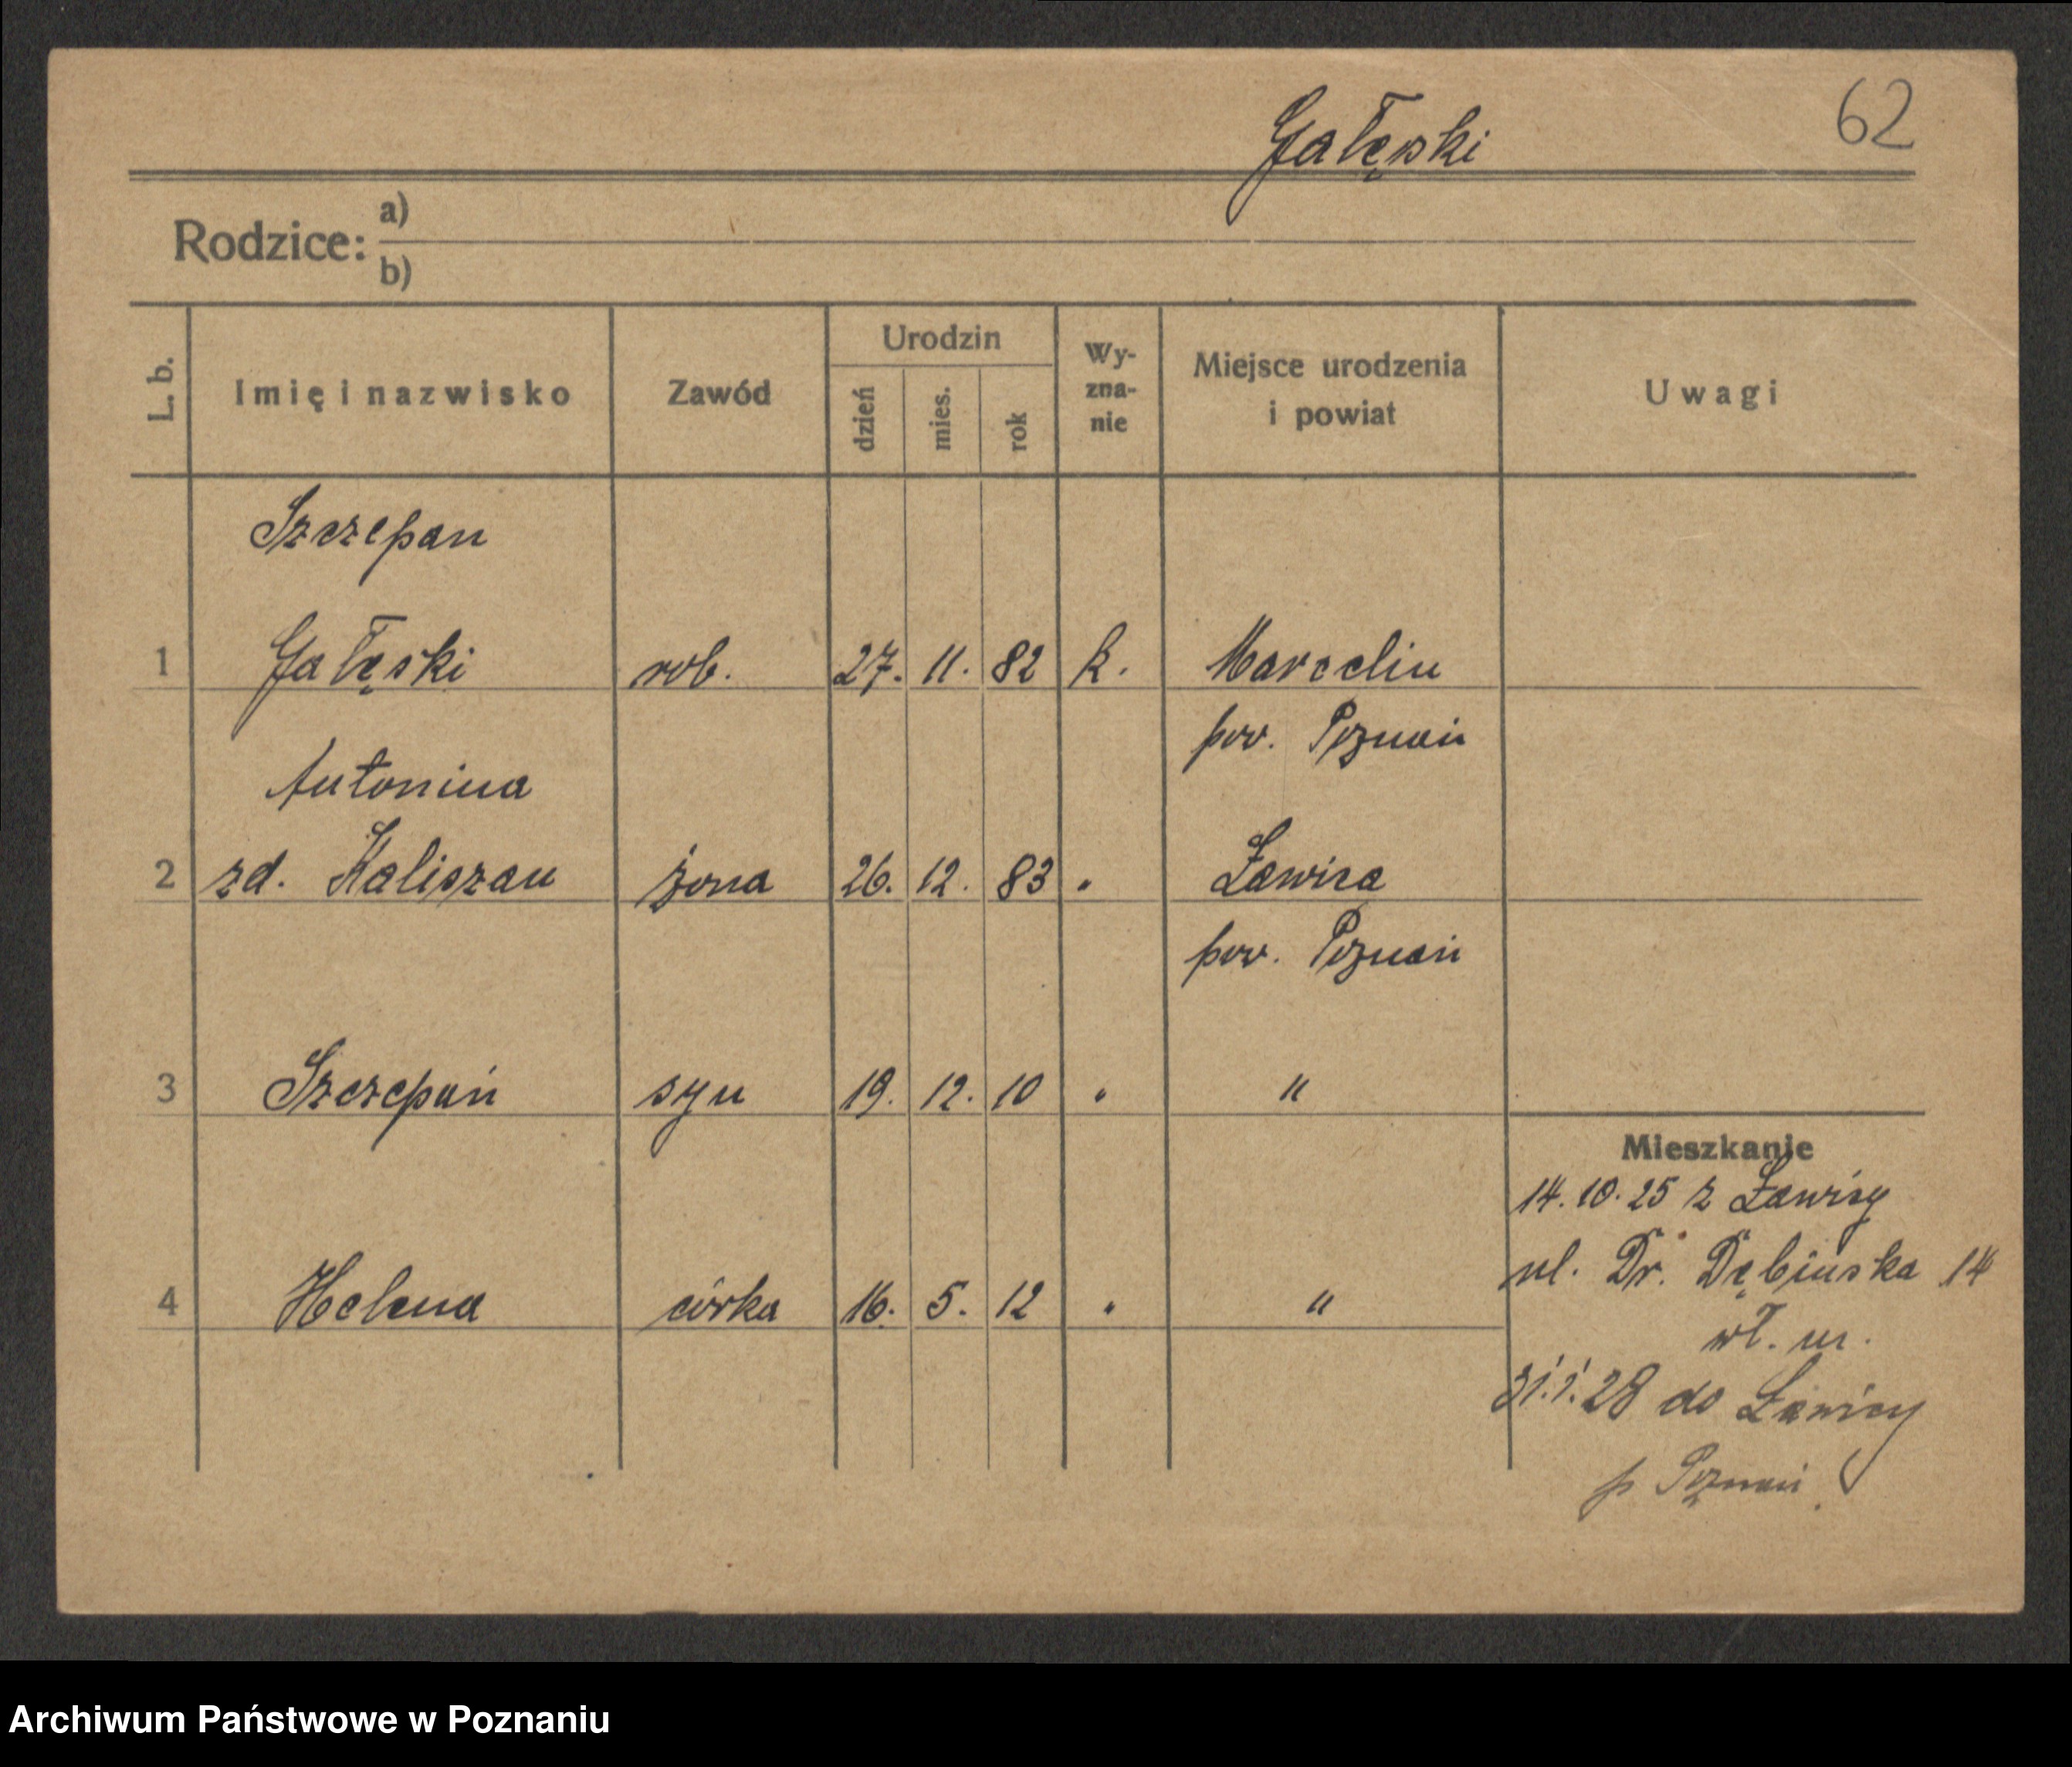 62
Gałęski
Rodzice: a)
b)
L. b. Imię i nazwisko Zawód Urodzin dzień mies. rok Wy-zna-nie Miejsce urodzenia i powiat Uwagi
Szczepan
1 Gałęski rob. 27. 11. 82 k. Marcelin
pow. Poznań
Antonina
2 zd. Kaliszan żona 26. 12. 83 " Ławica
pow. Poznań
3 Szczepań syn 19. 12. 10 " "
Mieszkanie
14.10.25 z Ławicy
ul. Dr. Dębinska 14
wł. m.
4 Helena córka 16. 5. 12 " "
31.1.28 do Ławicy
p Poznań
Archiwum Państwowe w Poznaniu